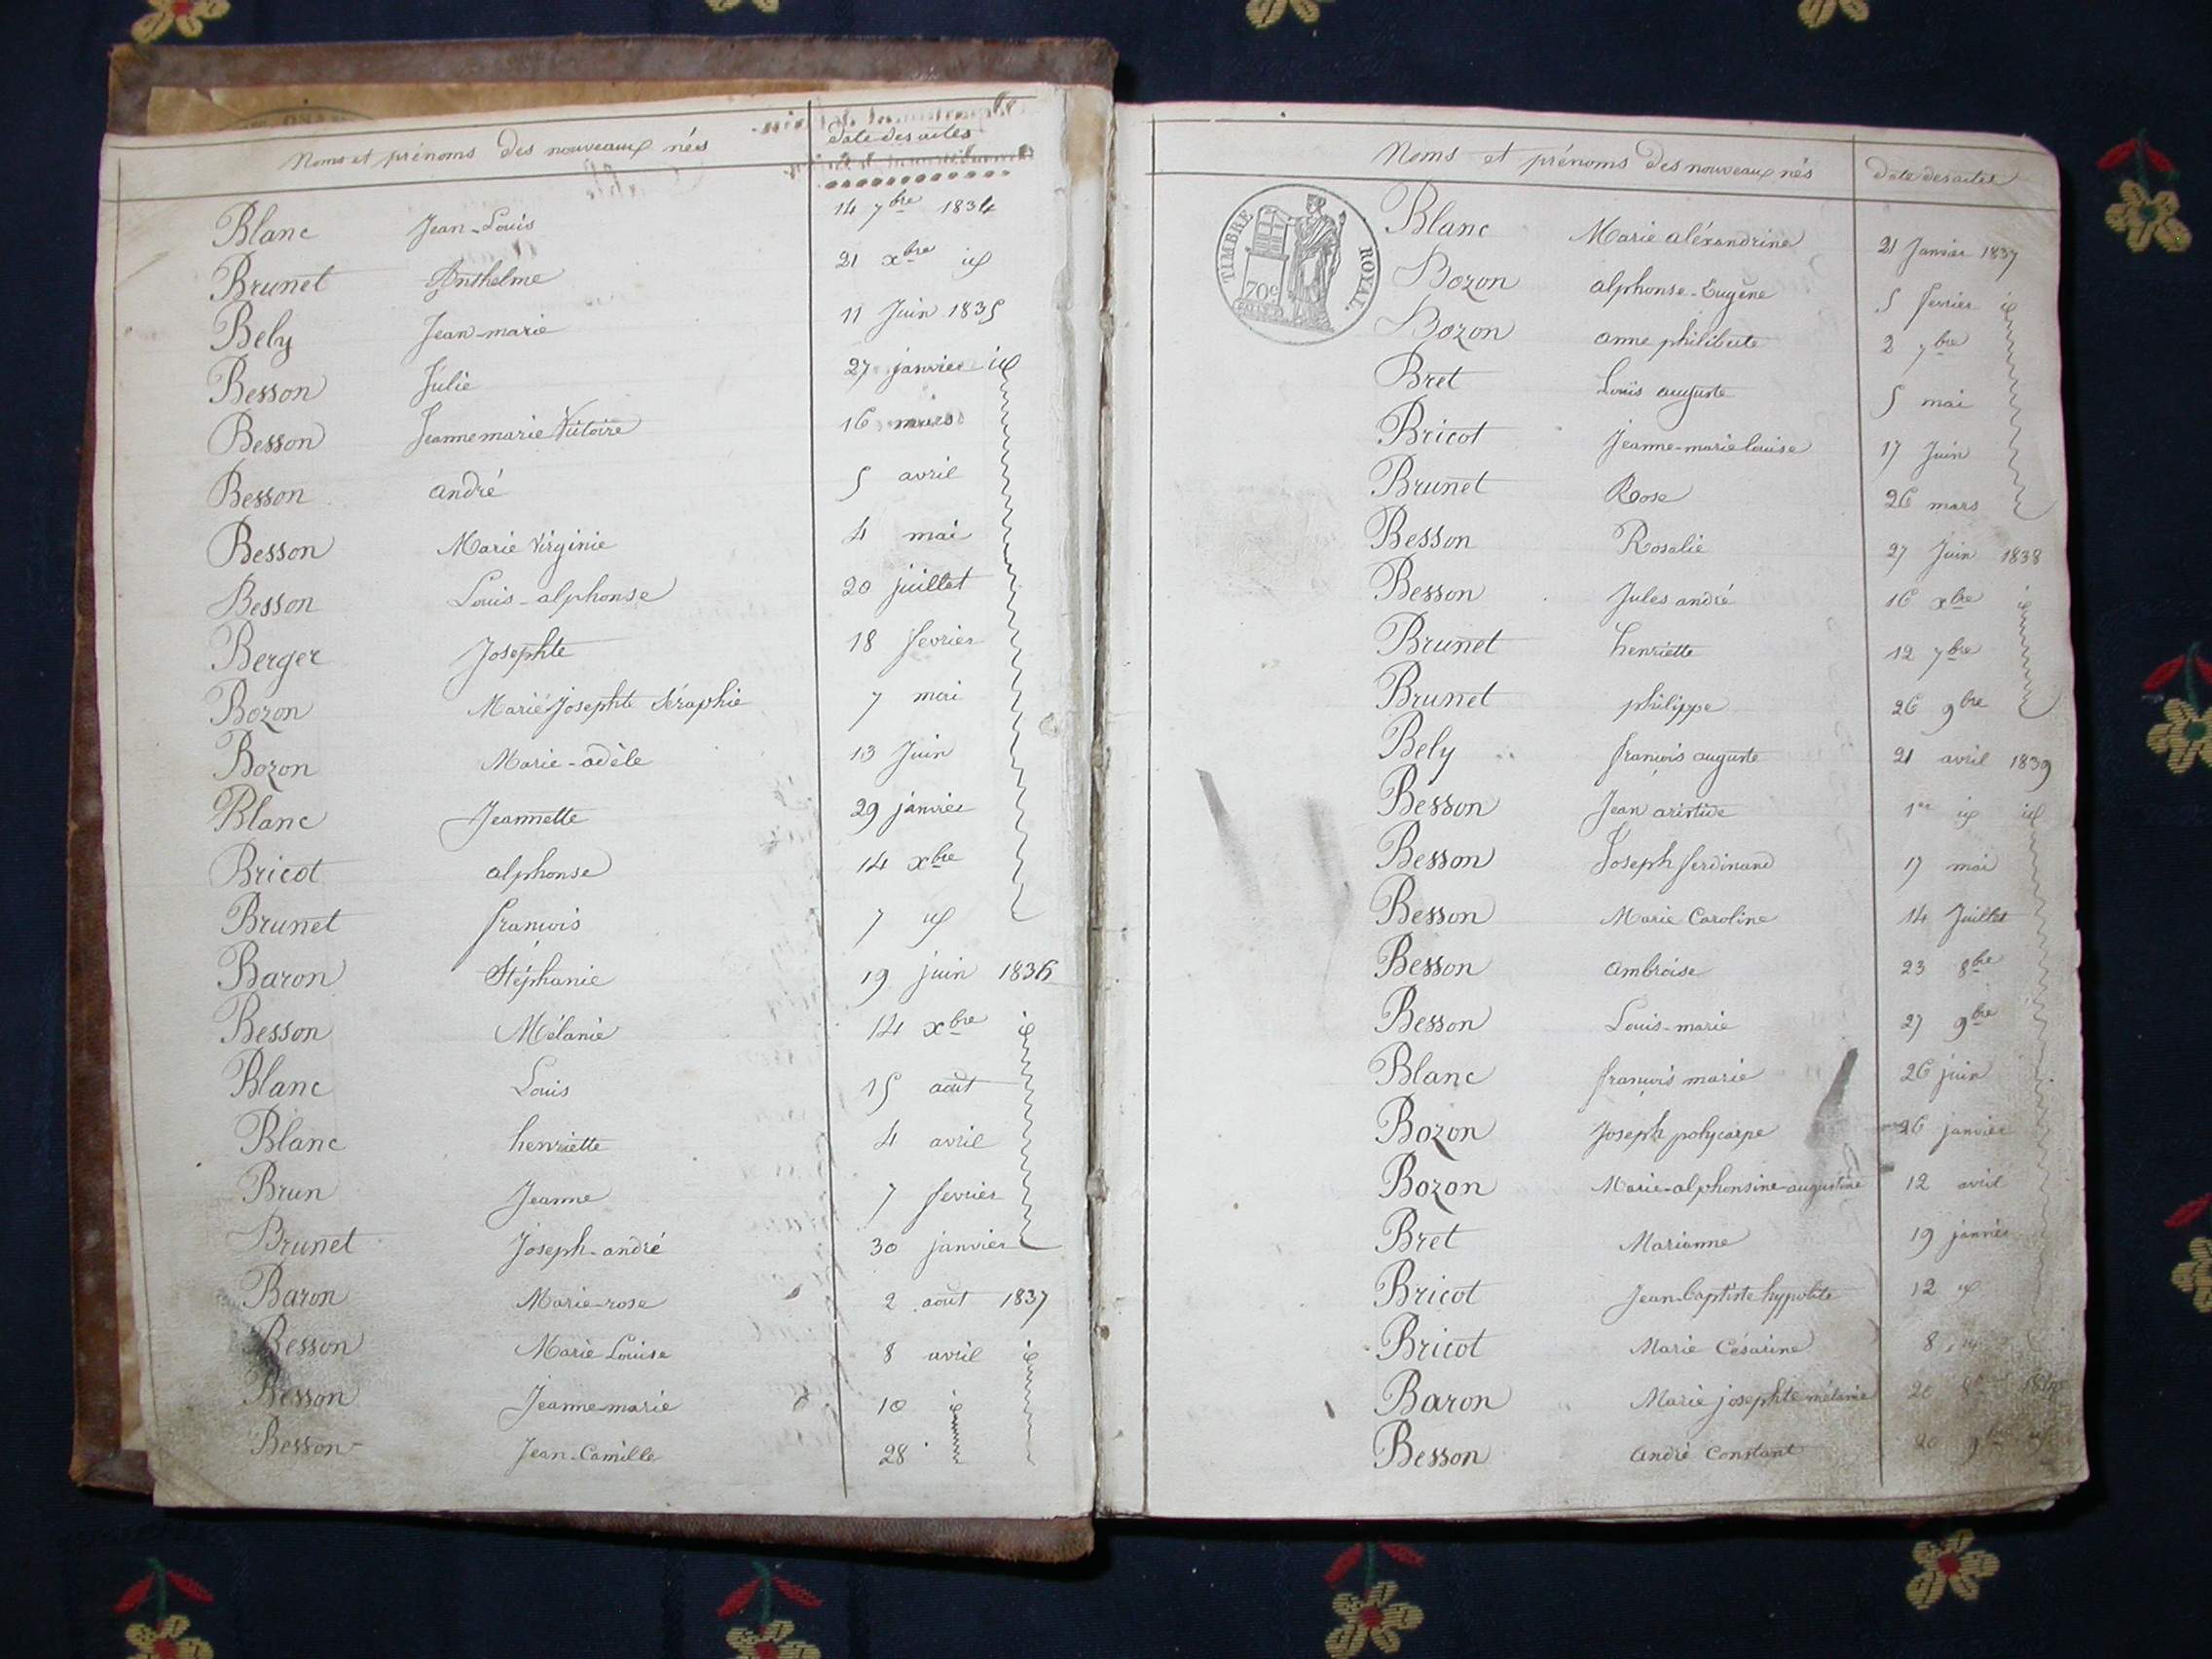 Noms et prénoms des nouveaux nés Date des actes
Blanc Jean-Louis 14 7bre 1834
Brunet Anthelme 21 xbre id
Bely Jean-marie 11 Juin 1835
Besson Julie 27 janvier id
Besson Jeanne marie Victoire 16 mars
Besson andré 5 avril
Besson Marie Virginie 4 mai
Besson Louis-alphonse 20 juillet
Berger Josephte 18 fevrier
Bozon Marie Josephte Séraphie 7 mai
Bozon Marie-adèle 13 Juin
Blanc Jeannette 29 janvier
Bricot alphonse 14 xbre
Brunet françois 7 id
Baron Stéphanie 19 juin 1836
Besson Mélanie 14 xbre id
Blanc Louis 15 août
Blanc henriette 4 avril
Brun Jeanne 7 fevrier
Brunet Joseph-andré 30 janvier
Baron Marie-rose 2 août 1837
Besson Marie Louise 8 avril id
Besson Jeanne-marie 10 id
Besson Jean-Camille 28
Noms et prénoms des nouveaux nés Date des actes
TIMBRE ROYAL.
70c
Blanc Marie aléxandrine 21 Janvier 1837
Bozon alphonse-Eugène 5 fevrier id
Bozon anne philiberte 2 7bre
Bret Louis auguste 5 mai
Bricot Jeanne-marie louise 17 Juin
Brunet Rose 26 mars
Besson Rosalie 27 Juin 1838
Besson Jules andré 16 xbre id
Brunet henriette 12 7bre
Brunet philippe 26 9bre
Bely françois auguste 21 avril 1839
Besson Jean aristide 1er id id
Besson Joseph ferdinand 17 mai
Besson Marie Caroline 14 Juillet
Besson ambroise 23 8bre
Besson Louis-marie 27 9bre
Blanc françois marie 26 juin
Bozon Joseph polycarpe 26 janvier
Bozon Marie-alphonsine-augustine 12 avril
Bret Marianne 19 janvier
Bricot Jean-baptiste hypolite 12 id
Bricot Marie Césarine 8 id
Baron Marie josephte mélanie
Besson andré Constant 20 9bre id